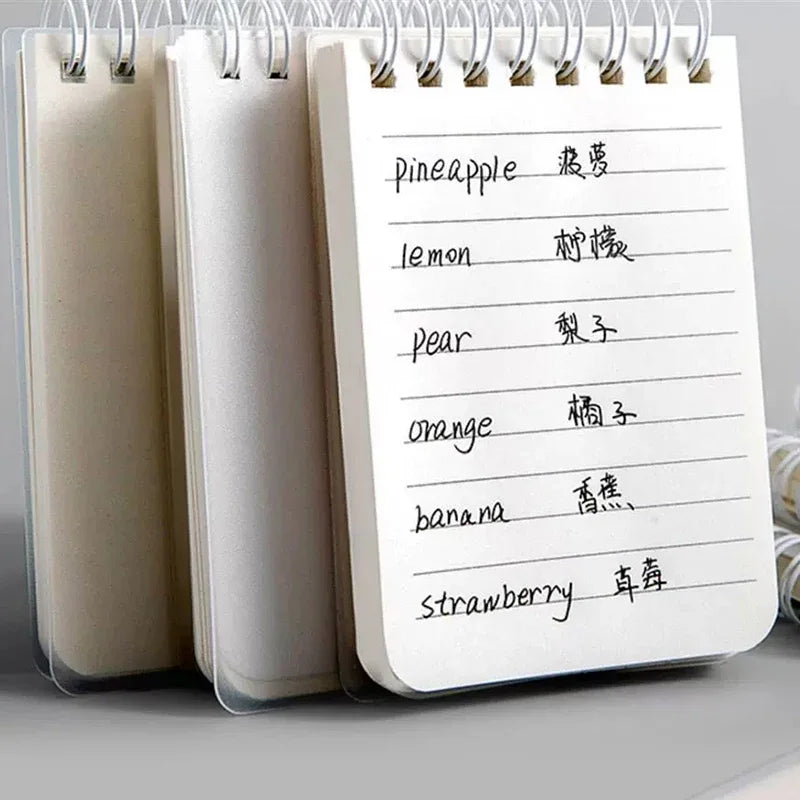 pineapple 菠萝
lemon 柠檬
pear 梨子
orange 橘子
banana 香蕉
strawberry 草莓